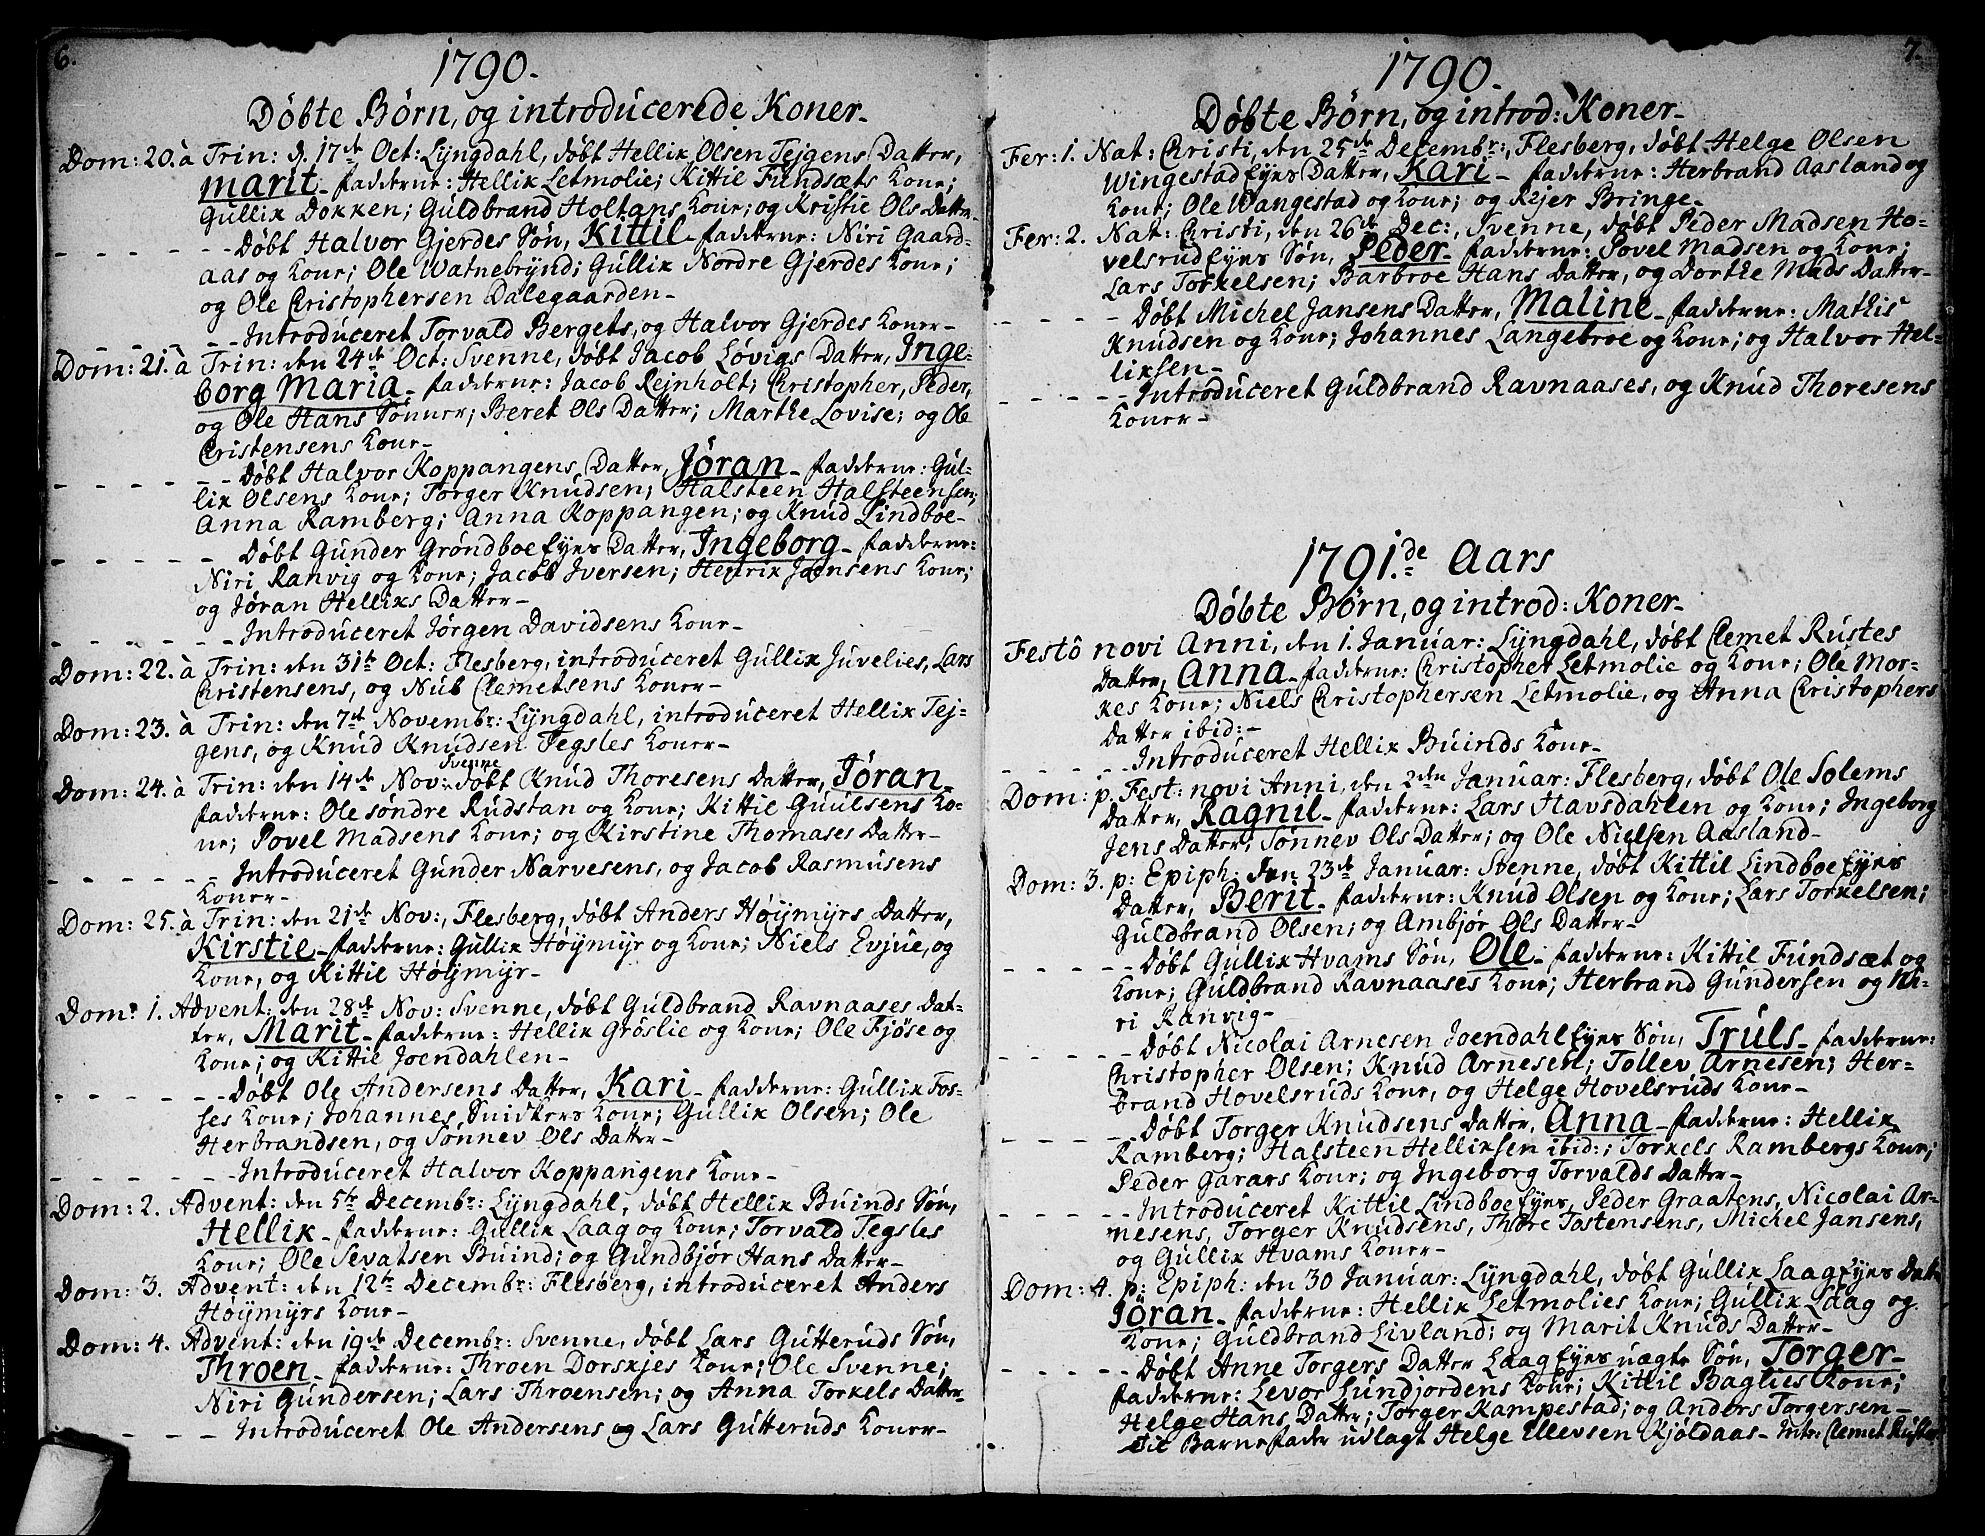 6.
1790.
Döbte Börn, og introducerede Koner-
Dom: 20. à Trin: d. 17de Oct: Lÿngdahl, döbt Hellix Olsen Tejgens Datter,
Marit- fadderne: Hellix Letmolie; Kittil Fundsæts Kone;
Gullix Dokken; Guldbrand Holtans Kone; og Kristie Ols Datter-
- - - - - - Döbt Halvor Gjerdes Sön, Kittil- fadderne: Niri Gaard-
aas og Kone; Ole Watnebrÿnd; Gullix Nordre Gjerdes Kone;
og Ole Christophersen Dalegaarden-
- - - - - - Introduceret Torvald Bergets, og Halvor Gjerdes Koner-
Dom: 21. à Trin: den 24de Oct: Svenne, döbt Jacob Lövigs Datter, Inge-
borg Maria- fadderne: Jacob Rejnholt; Christopher, Peder,
og Ole Hans Sönner; Beret Ols Datter; Marthe Lovise; og Ole
Christensens Kone-
- - - - - - Döbt Halvor Koppangens Datter, Jöran- fadderne: Gul-
lix Olsens Kone; Torger Knudsen; Halsteen Halsteensen;
Anna Ramberg; Anna Koppangen; og Knud Lindboe-
- - - - - - Döbt Gunder Gröndboe Eyes Datter, Ingeborg- fadderne:
Niri Ranvig og Kone; Jacob Iversen; Henrix Jansens Kone;
og Jöran Hellixs Datter-
- - - - - - Introduceret Jörgen Davidsens Kone-
Dom: 22. à Trin: den 31te Oct: Flesberg, introduceret Gullix Juvelies, Lars
Christensens, og Nub Clemetsens Koner-
Dom: 23. à Trin: den 7de Novembr: Lÿngdahl, introduceret Hellix Tej-
gens, og Knud Knudsen Tegsles Koner-
Svenne
Dom: 24. à Trin: den 14de Nov: döbt Knud Thoresens Datter, Jöran-
fadderne: Ole söndre Rudstan og Kone; Kittil Guulsens Ko-
ne; Povel Madsens Kone; og Kirstine Thomases Datter-
- - - - - - Introduceret Gunder Narvesens, og Jacob Rasmusens
Koner-
Dom: 25. à Trin: den 21de Nov:, Flesberg, döbt Anders Höÿmÿrs Datter,
Kirstie- fadderne: Gullix Höÿmÿr og Kone; Niels Evjue, og
Kone, og Kittil Höÿmÿr-
Dom: 1. Advent: den 28de Nov: Svenne, döbt Guldbrand Ravnaases Dat-
ter, Marit- fadderne: Hellix Gröslie og Kone; Ole Fjöse og
Kone; og Kittil Joendahlen-
- - - - - - Döbt Ole Andersens Datter, Kari- fadderne: Gullix Fos-
ses Kone; Johannes Snidkers Kone; Gullix Olsen; Ole
Herbrandsen, og Sönnev Ols Datter-
- - - - - - Introduceret Halvor Koppangens Kone-
Dom: 2. Advent: den 5te Decembr: Lÿngdahl, döbt Hellix Buinds Sön,
Hellix- fadderne: Gullix Laag og Kone; Torvald Tegsles
Kone; Ole Sevatsen Buind; og Gundbjör Hans Datter-
Dom: 3. Advent: den 12te Decembr: Flesberg, introduceret Anders
Höÿmÿrs Kone-
Dom: 4. Advent: den 19de Decembr: Svenne, döbt Lars Gutteruds Sön,
Throen- fadderne: Throen Dorskjes Kone; Ole Svenne;
Niri Gundersen; Lars Throensen; og Anna Torkels Datter-
- - - - - - Introduceret Ole Andersens og Lars Gutteruds Koner-
7.
1790.
Döbte Börn, og introd: Koner-
Fer: 1. Nat: Christi, den 25de Decembr:, Flesberg, döbt Helge Olsen
Wingestad Eyes Datter, Kari- fadderne: Herbrand Aasland og
Kone; Ole Wangestad og Kone; og Rejer Bringe-
Fer: 2. Nat: Christi, den 26de Dec:, Svenne, döbt Peder Madsen Ho-
velsrud Eyes Sön, Peder- fadderne: Povel Madsen og Kone;
Lars Torkelsen; Barbroe Hans Datter, og Dorthe Mads Datter-
- - - - - Döbt Michel Jansens Datter, Maline- fadderne: Mathis
Knudsen og Kone; Johannes Langebroe og Kone; og Halvor Hel-
lixsen-
- - - - - Introduceret Guldbrand Ravnaases, og Knud Thoresens
Koner-
1791.de Aars
Döbte Börn, og introd: Koner-
Festô novi Anni, den 1. Januar: Lÿngdahl, döbt Clemet Rustes
Datter, Anna- fadderne: Christopher Letmolie og Kone; Ole Mor-
kes Kone; Niels Christophersen Letmolie, og Anna Christophers
Datter ibid:-
- - - - - Introduceret Hellix Buinds Kone-
Dom: p. Fest: novi Anni, den 2den Januar: Flesberg, döbt Ole Solems
Datter, Ragnil- fadderne: Lars Havsdahlen og Kone; Ingeborg
Jens Datter, Sönnev Ols Datter; og Ole Nielsen Aasland-
Dom: 3. p: Epiph: den 23de Januar: Svenne, döbt Kittil Lindboe Eyes
Datter, Berit- fadderne: Knud Olsen og Kone; Lars Torkelsen;
Guldbrand Olsen; og Ambjör Ols Datter-
- - - - - Döbt Gullix Hvams Sön, Ole- fadderne: Kittil Fundsæt og
Kone; Guldbrand Ravnaases Kone; Herbrand Gundersen og Ni-
ri Ranvig-
- - - - - Döbt Nicolai Arnesen Joendahl Eyes Sön, Truls- fadderne:
Christopher Olsen; Knud Arnesen; Tollev Arnesen; Her-
brand Hovelsruds Kone, og Helge Hovelsruds Kone-
- - - - - Döbt Torger Knudsens Datter, Anna- fadderne: Hellix
Ramberg; Halsteen Hellixsen ibid:; Torkels Rambergs Kone;
Peder Garars Kone; og Ingeborg Torvalds Datter-
- - - - - Introduceret Kittil Lindboe Eyes, Peder Graatens, Nicolai Ar-
nesens, Torger Knudsens, Thore Tostensens, Michel Jansens,
og Gullix Hvams Koner-
Dom: 4. p: Epiph: den 30 Januar: Lÿngdahl, döbt Gullix Laag Eyes Dat:
Jöran- fadderne: Hellix Letmolies Kone; Gullix Laag og
Kone; Guldbrand Livland; og Marit Knuds Datter-
- - - - - Döbt Anne Torgers Datter Laag Eyes uægte Sön, Torger-
fadderne: Levor Lundjordens Kone; Kittil Baglies Kone;
Helge Hans Datter; Torger Kampestad; og Anders Torgersen-
Til Barnefader udlagt Helge Ellevsen Kjöldaas- Intr: Clemet Rustes